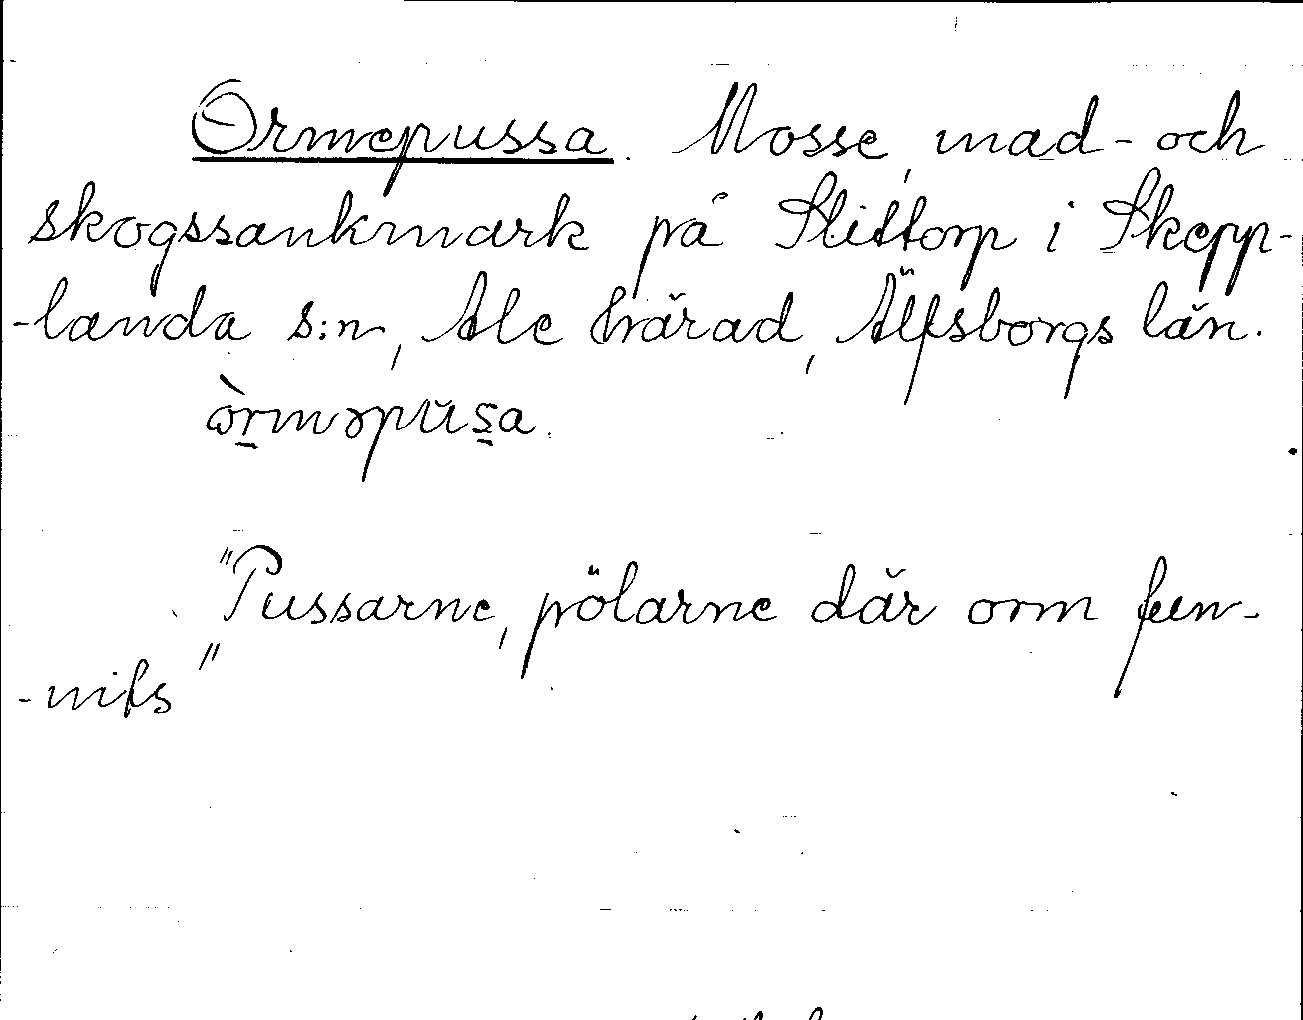 Ormepussa. Mosse, mad- och
skogssankmark på Slittorp i Skepp-
-landa s:n, Ale härad, Älfsborgs län.
òrməpŭsa.
"Pussarne, pölarne där orm fun-
-nits"